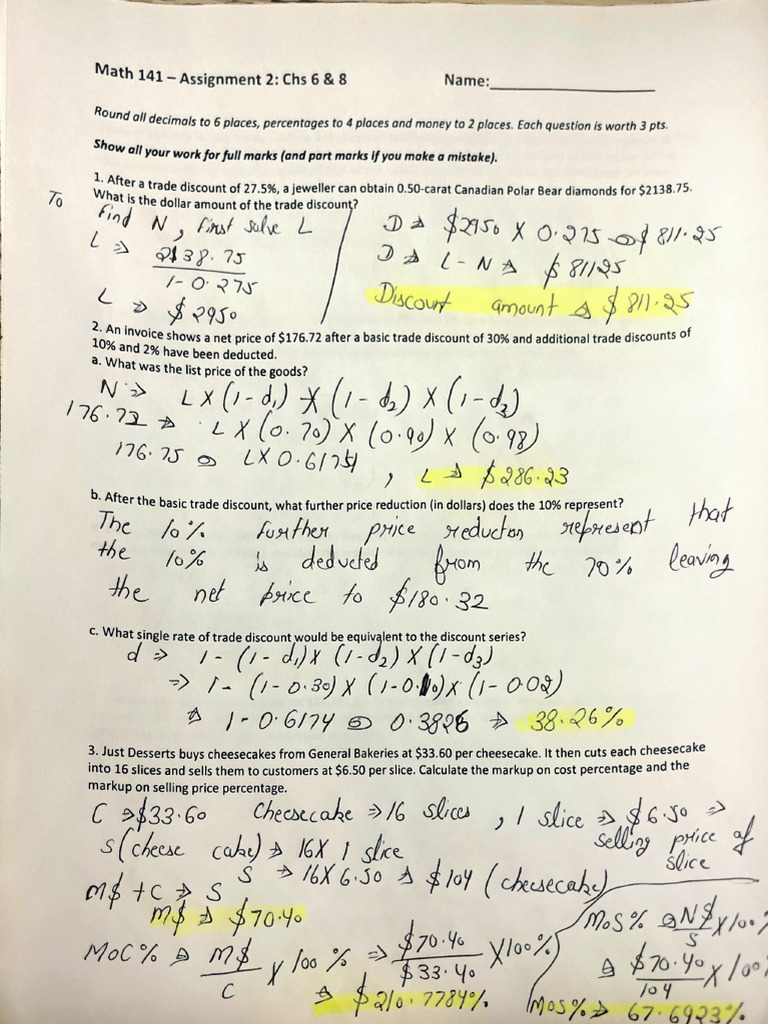 Math 141 – Assignment 2: Chs 6 & 8 Name:
Round all decimals to 6 places, percentages to 4 places and money to 2 places. Each question is worth 3 pts.
Show all your work for full marks (and part marks if you make a mistake).
1. After a trade discount of 27.5%, a jeweller can obtain 0.50-carat Canadian Polar Bear diamonds for $2138.75.
What is the dollar amount of the trade discount?
To find N, first solve L
L ⇒ 2138.75
1-0.275
L ⇒ $2950
D ⇒ $2950 X 0.275 ⇒ $811.25
D ⇒ L - N ⇒ $81125
Discount amount ⇒ $811.25
2. An invoice shows a net price of $176.72 after a basic trade discount of 30% and additional trade discounts of
10% and 2% have been deducted.
a. What was the list price of the goods?
N ⇒ L X (1-d₁) X (1-d₂) X (1-d₃)
176.72 ⇒ L X (0.70) X (0.90) X (0.98)
176.75 ⇒ LX 0.6174, L ⇒ $286.23
b. After the basic trade discount, what further price reduction (in dollars) does the 10% represent?
The 10% further price reducton represent that
the 10% is deducted from the 70% leaving
the net price to $180.32
c. What single rate of trade discount would be equivalent to the discount series?
d ⇒ 1 - (1-d₁) X (1-d₂) X (1-d₃)
⇒ 1 - (1-0.30) X (1-0.10) X (1-0.02)
⇒ 1-0.6174 ⇒ 0.3826 ⇒ 38.26%
3. Just Desserts buys cheesecakes from General Bakeries at $33.60 per cheesecake. It then cuts each cheesecake
into 16 slices and sells them to customers at $6.50 per slice. Calculate the markup on cost percentage and the
markup on selling price percentage.
C ⇒ $33.60 Cheesecake ⇒ 16 slices, 1 slice ⇒ $6.50 ⇒
selling price of
slice
S (cheese cake) ⇒ 16X 1 slice
S ⇒ 16X 6.50 ⇒ $104 (cheesecake)
M$ + C ⇒ S
M$ ⇒ $70.40
MoC% ⇒ M$ X 100% ⇒ $70.40 X100%
C $33.40
⇒ $210.7784%
MoS% ⇒ N$ X100%
S
⇒ $70.40 X 100%
104
MoS% ⇒ 67.6923%